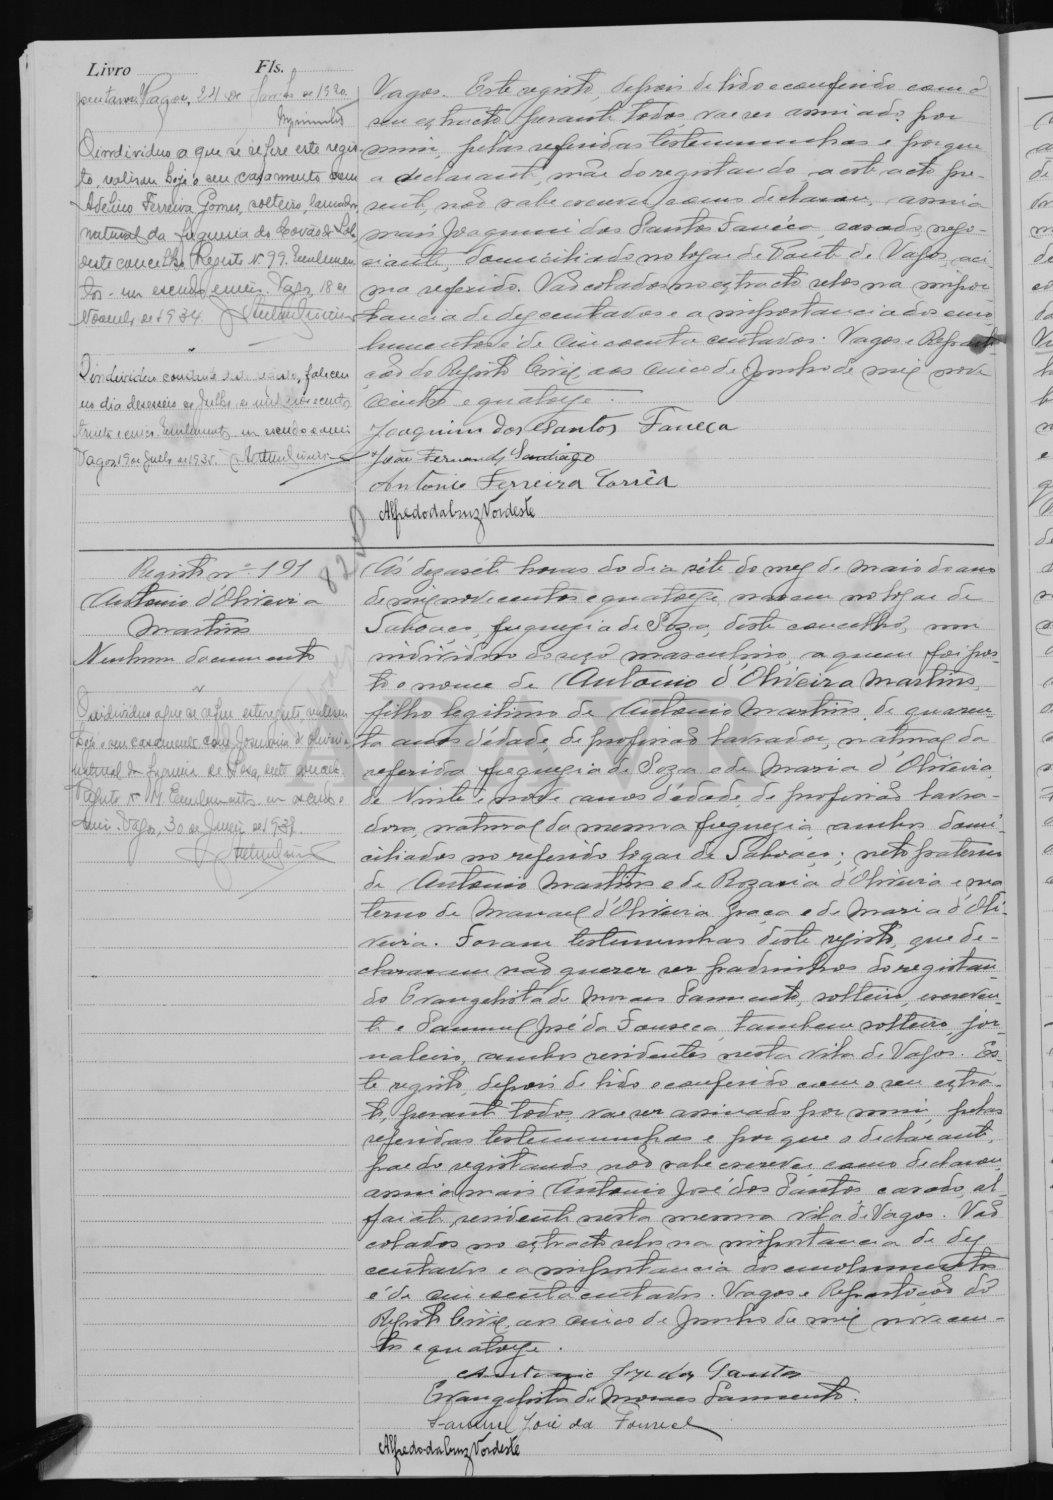 Livro Fls.
Vagos, 24 de de 1920.
O individuo a que se refere este regis-
to, realisou hoje o seu casamento com
Adelino Ferreira Gomes, solteiro, lavrador,
natural da freguesia de Covão do Lobo
deste concelho. Registo Nº 99. Emolumen-
tos um escudo e meio. Vagos, 18 de
Novembro de 1934.
O individuo constante deste registo, faleceu
no dia dezesseis de Julho de mil novecentos
trinta e cinco. Emolumentos um escudo e meio
Vagos 19 de Julho de 1935.
Vagos. Este registo, depois de lido e conferido com o
seu extracto perante todos, vae ser assinado por
mim, pelas referidas testemunhas e porque
a declarante, mãe do registando a este acto pre-
sente, não sabe escrever como declarou, assina
mais Joaquim dos Santos Faneca, casado, nego-
ciante, domiciliado no logar de Ponte de Vagos, aci-
ma referido. Vão colados no extracto selos na impor-
tancia de dez centavos e a importancia dos emo-
lumentos é de cincoenta centavos. Vagos e Reparti-
ção do Registo Civil, aos cinco de Junho de mil nove
centos e quatorze.
Joaquim dos Santos Faneca
João Fernandes Santiago
António Ferreira Corrêa
Alfredo da Cruz Nordeste
Registo nº 191
Antonio d'Oliveira
Martins
Nenhum documento
O individuo a que se refere este registo, realisou
hoje o seu casamento com de Oliveira
natural da freguesia de Soza, deste concelho.
Registo Nº Emolumentos um escudo e
meio. Vagos, 30 de de 193
Ás dezasete horas do dia sete do mez de maio do ano
de mil novecentos e quatorze, nasceu no logar de
Salvaes, freguezia de Soza, deste concelho, um
individuo do sexo masculino, a quem foi pos-
to o nome de Antonio d'Oliveira Martins,
filho legitimo de Antonio Martins, de quaren-
ta anos d'edade, de profissão lavrador, natural da
referida freguezia de Soza e de Maria d'Oliveira,
de vinte e nove anos d'edade, de profissão lavra-
dora, natural da mesma freguezia ambos domi-
ciliados no referido logar de Salvaes; neto paterno
de Antonio Martins e de Rozaria d'Oliveira e ma
terno de Manuel d'Oliveira Graça e de Maria d'Oli-
veira. Foram testemunhas deste registo, que de-
claram não querer ser padrinhos do registan-
do Evangelista de Moraes Sarmento, solteiro, escreven-
te e Samuel José da Fonseca, tambem solteiro, jor-
naleiro, ambos residentes nesta vila de Vagos. Es-
te registo, depois de lido e conferido com o seu extra-
to, perante todos, vae ser assinado por mim, pelas
referidas testemunhas e por que o declarante,
pae do registando não sabe escrever como declarou,
assina mais Antonio José dos Santos, casado, al-
faiate, residente nesta mesma vila de Vagos. Vão
colados no extracto selos na importancia de dez
centavos e a importancia dos emolumentos
é de cincoenta centavos. Vagos e Repartição do
Registo Civil, aos cinco de Junho de mil novecen-
tos e quatorze.
Antonio Jose dos Santos
Evangelista de Moraes Sarmento.
Samuel José da Fonseca
Alfredo da Cruz Nordeste